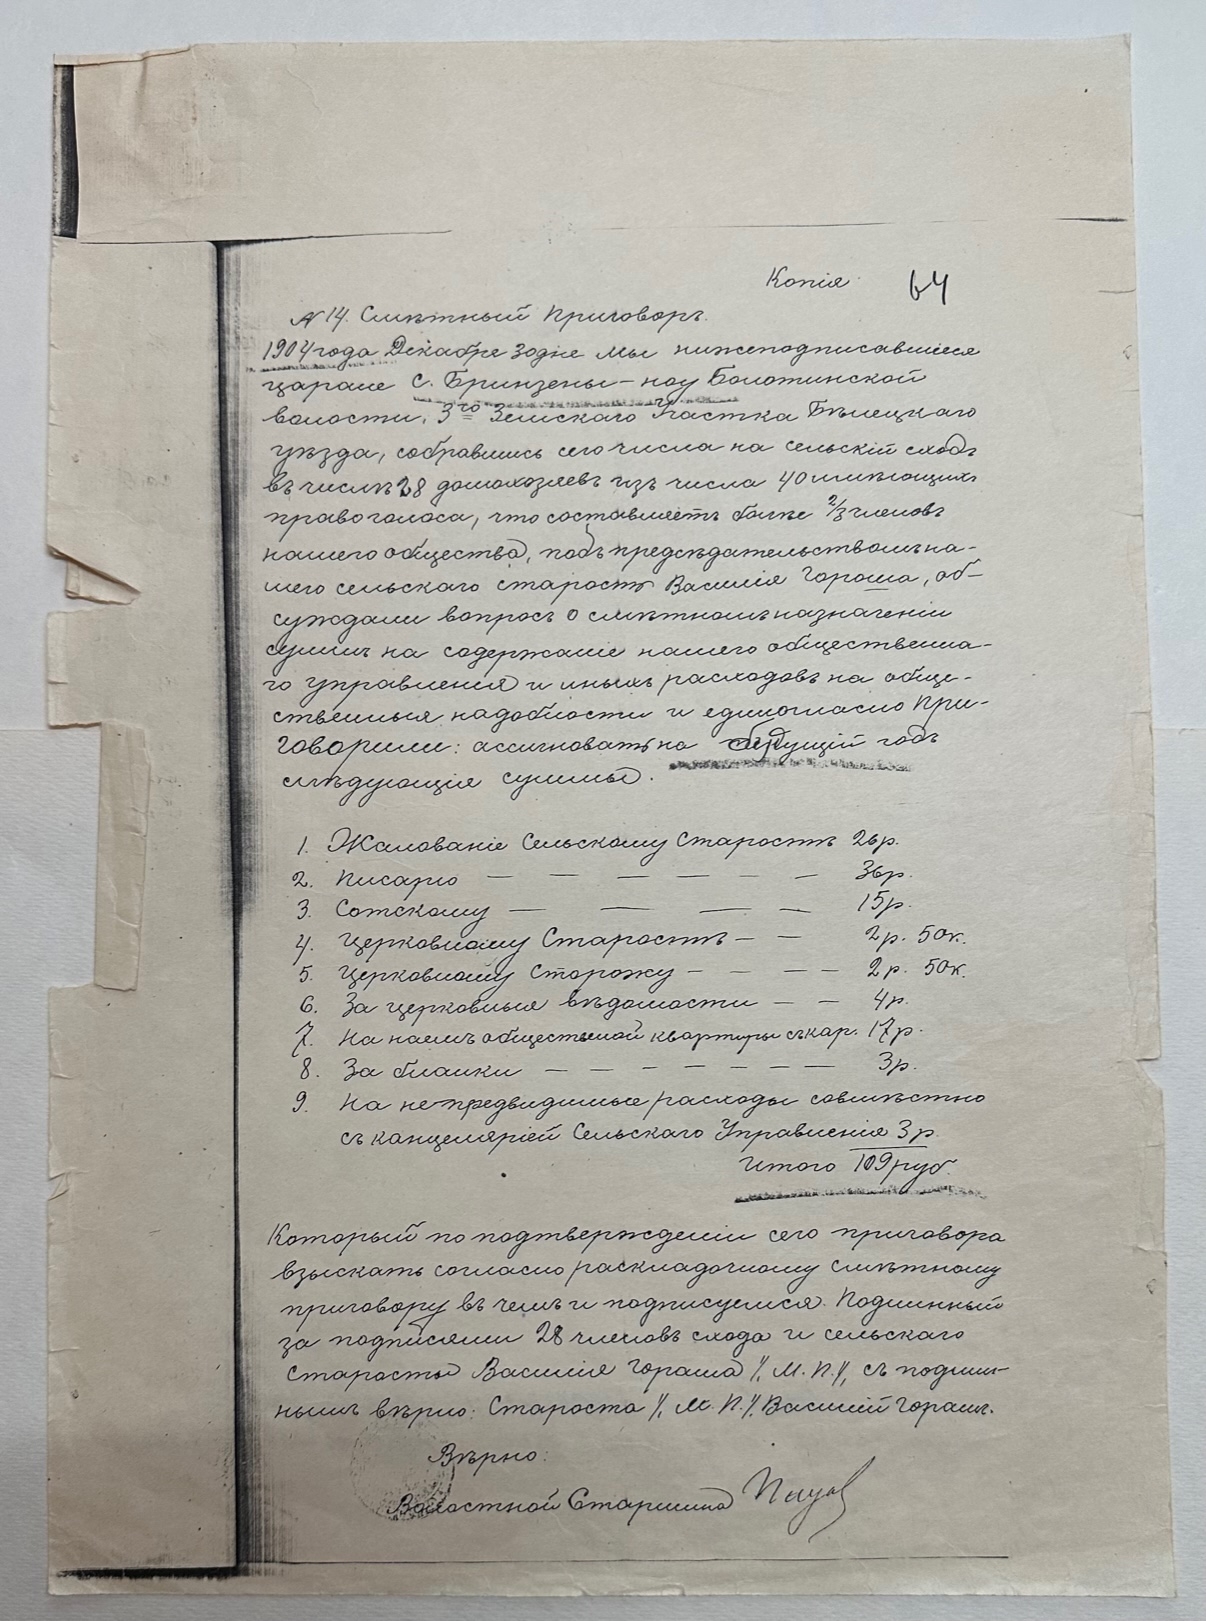 Копія 64
№ 14. Смѣтный Приговоръ.
1904 года Декабре 30 дне мы нижеподписавшіеся
царане с. Бринзены-ноу Болотинской
волости, 3го Земскаго Участка Бѣлецкаго
уѣзда, собравшись сего числа на сельскій сходъ
въ числѣ 28 домохозяевъ изъ числа 40 имѣющихъ
право голоса, что составляетъ болѣе 2/3 членовъ
нашего общества, подъ предсѣдательствомъ на-
шего сельскаго старосты Василія Гораша, об-
суждали вопросъ о смѣтномъ назначеніи
суммъ на содержаніе нашего общественна-
го управленія и иныхъ расходовъ на обще-
ственныя надобности и единогласно При-
говорили: ассигновать на будущій годъ
слѣдующія суммы.
1. Жалованіе Сельскому Старостѣ 26 р.
2. Писарю — — — — — — 36 р.
3. Сотскому — — — — 15 р.
4. Церковному Старостѣ — — 2 р. 50 к.
5. Церковному Сторожу — — — — 2 р. 50 к.
6. За церковныя вѣдомости — — 4 р.
7. На наемъ общественой квартиры съ кар. 17 р.
8. За бланки — — — — — — — 3 р.
9. На непредвидимые расходы совмѣстно
съ канцеляріей Сельскаго Управленія 3 р.
Итого 109 руб.
Который по подтвержденіи сего приговора
взыскать согласно раскладочному смѣтному
приговору въ чемъ и подписуемся. Подлинный
за подписями 28 членовъ схода и сельскаго
старосты Василія Гораша /, М. П. /, съ подлин-
нымъ вѣрно: Староста /, М. П. /, Василій Горашъ.
Вѣрно:
Волостной Старшина